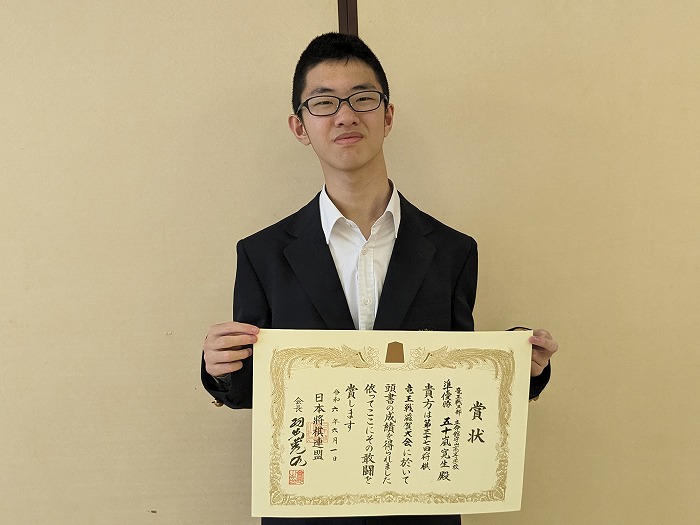 賞状
竜王戦の部 立命館守山高等学校
準優勝 五十嵐寛生殿
貴方は第三十七回将棋
竜王戦滋賀大会に於いて
頭書の成績を得られました
依ってここにその敢闘を
賞します
令和六年六月一日
日本将棋連盟
会長 羽生善治